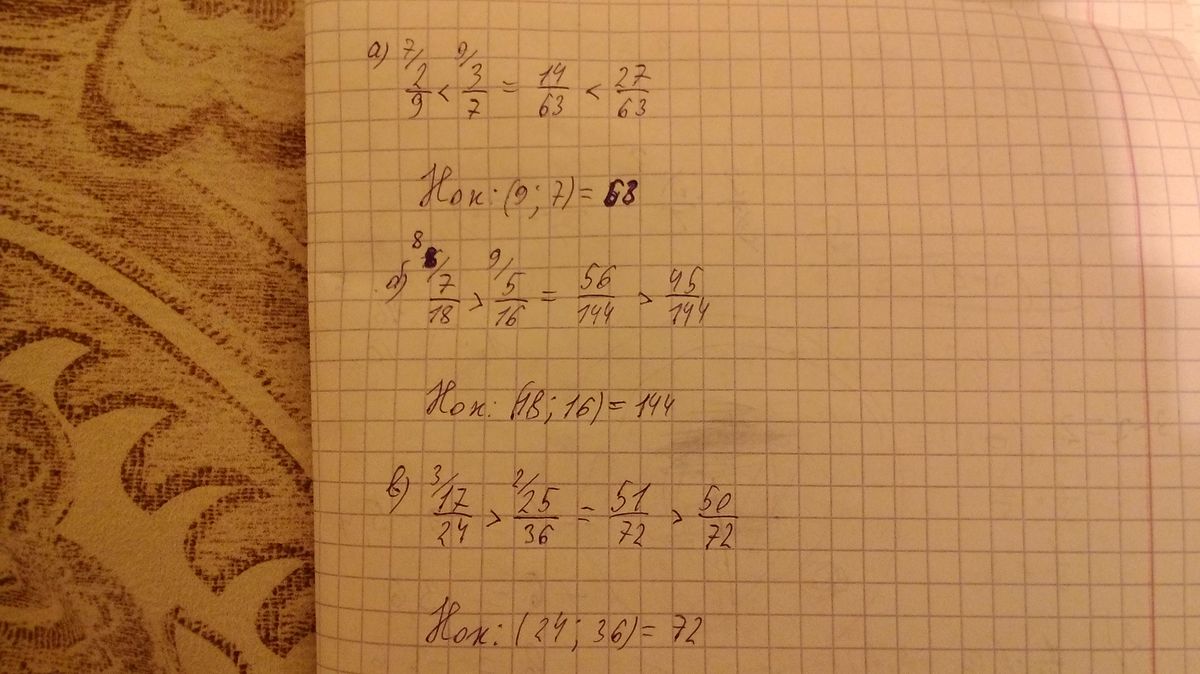 а) 7/ 9/
2/9 < 3/7 = 14/63 < 27/63
Нок: (9; 7) = 63
8 9/
б) 7/18 > 5/16 = 56/144 > 45/144
Нок: (18; 16) = 144
3/ 2/
в) 17/24 > 25/36 = 51/72 > 50/72
Нок: (24; 36) = 72